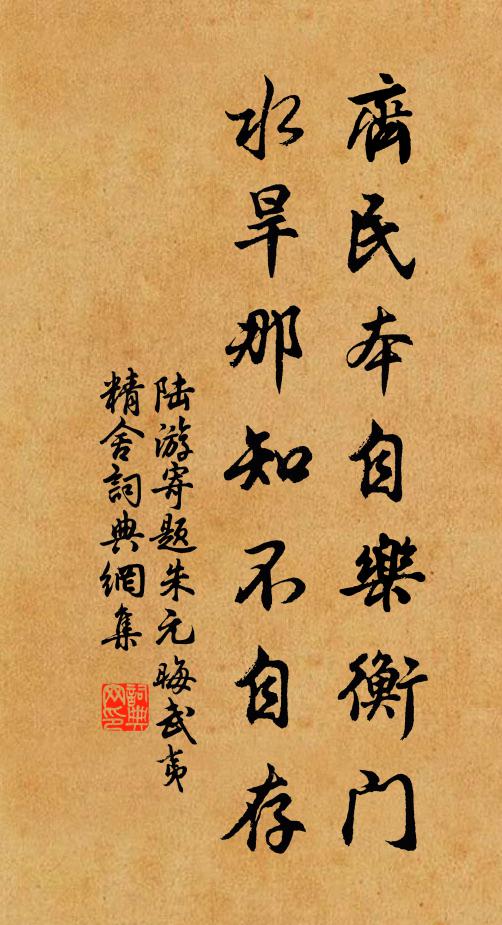 齊民本自樂衡門
水旱那知不自存
陆游寄題朱元晦武夷
精舍詞典網集
詞典网印